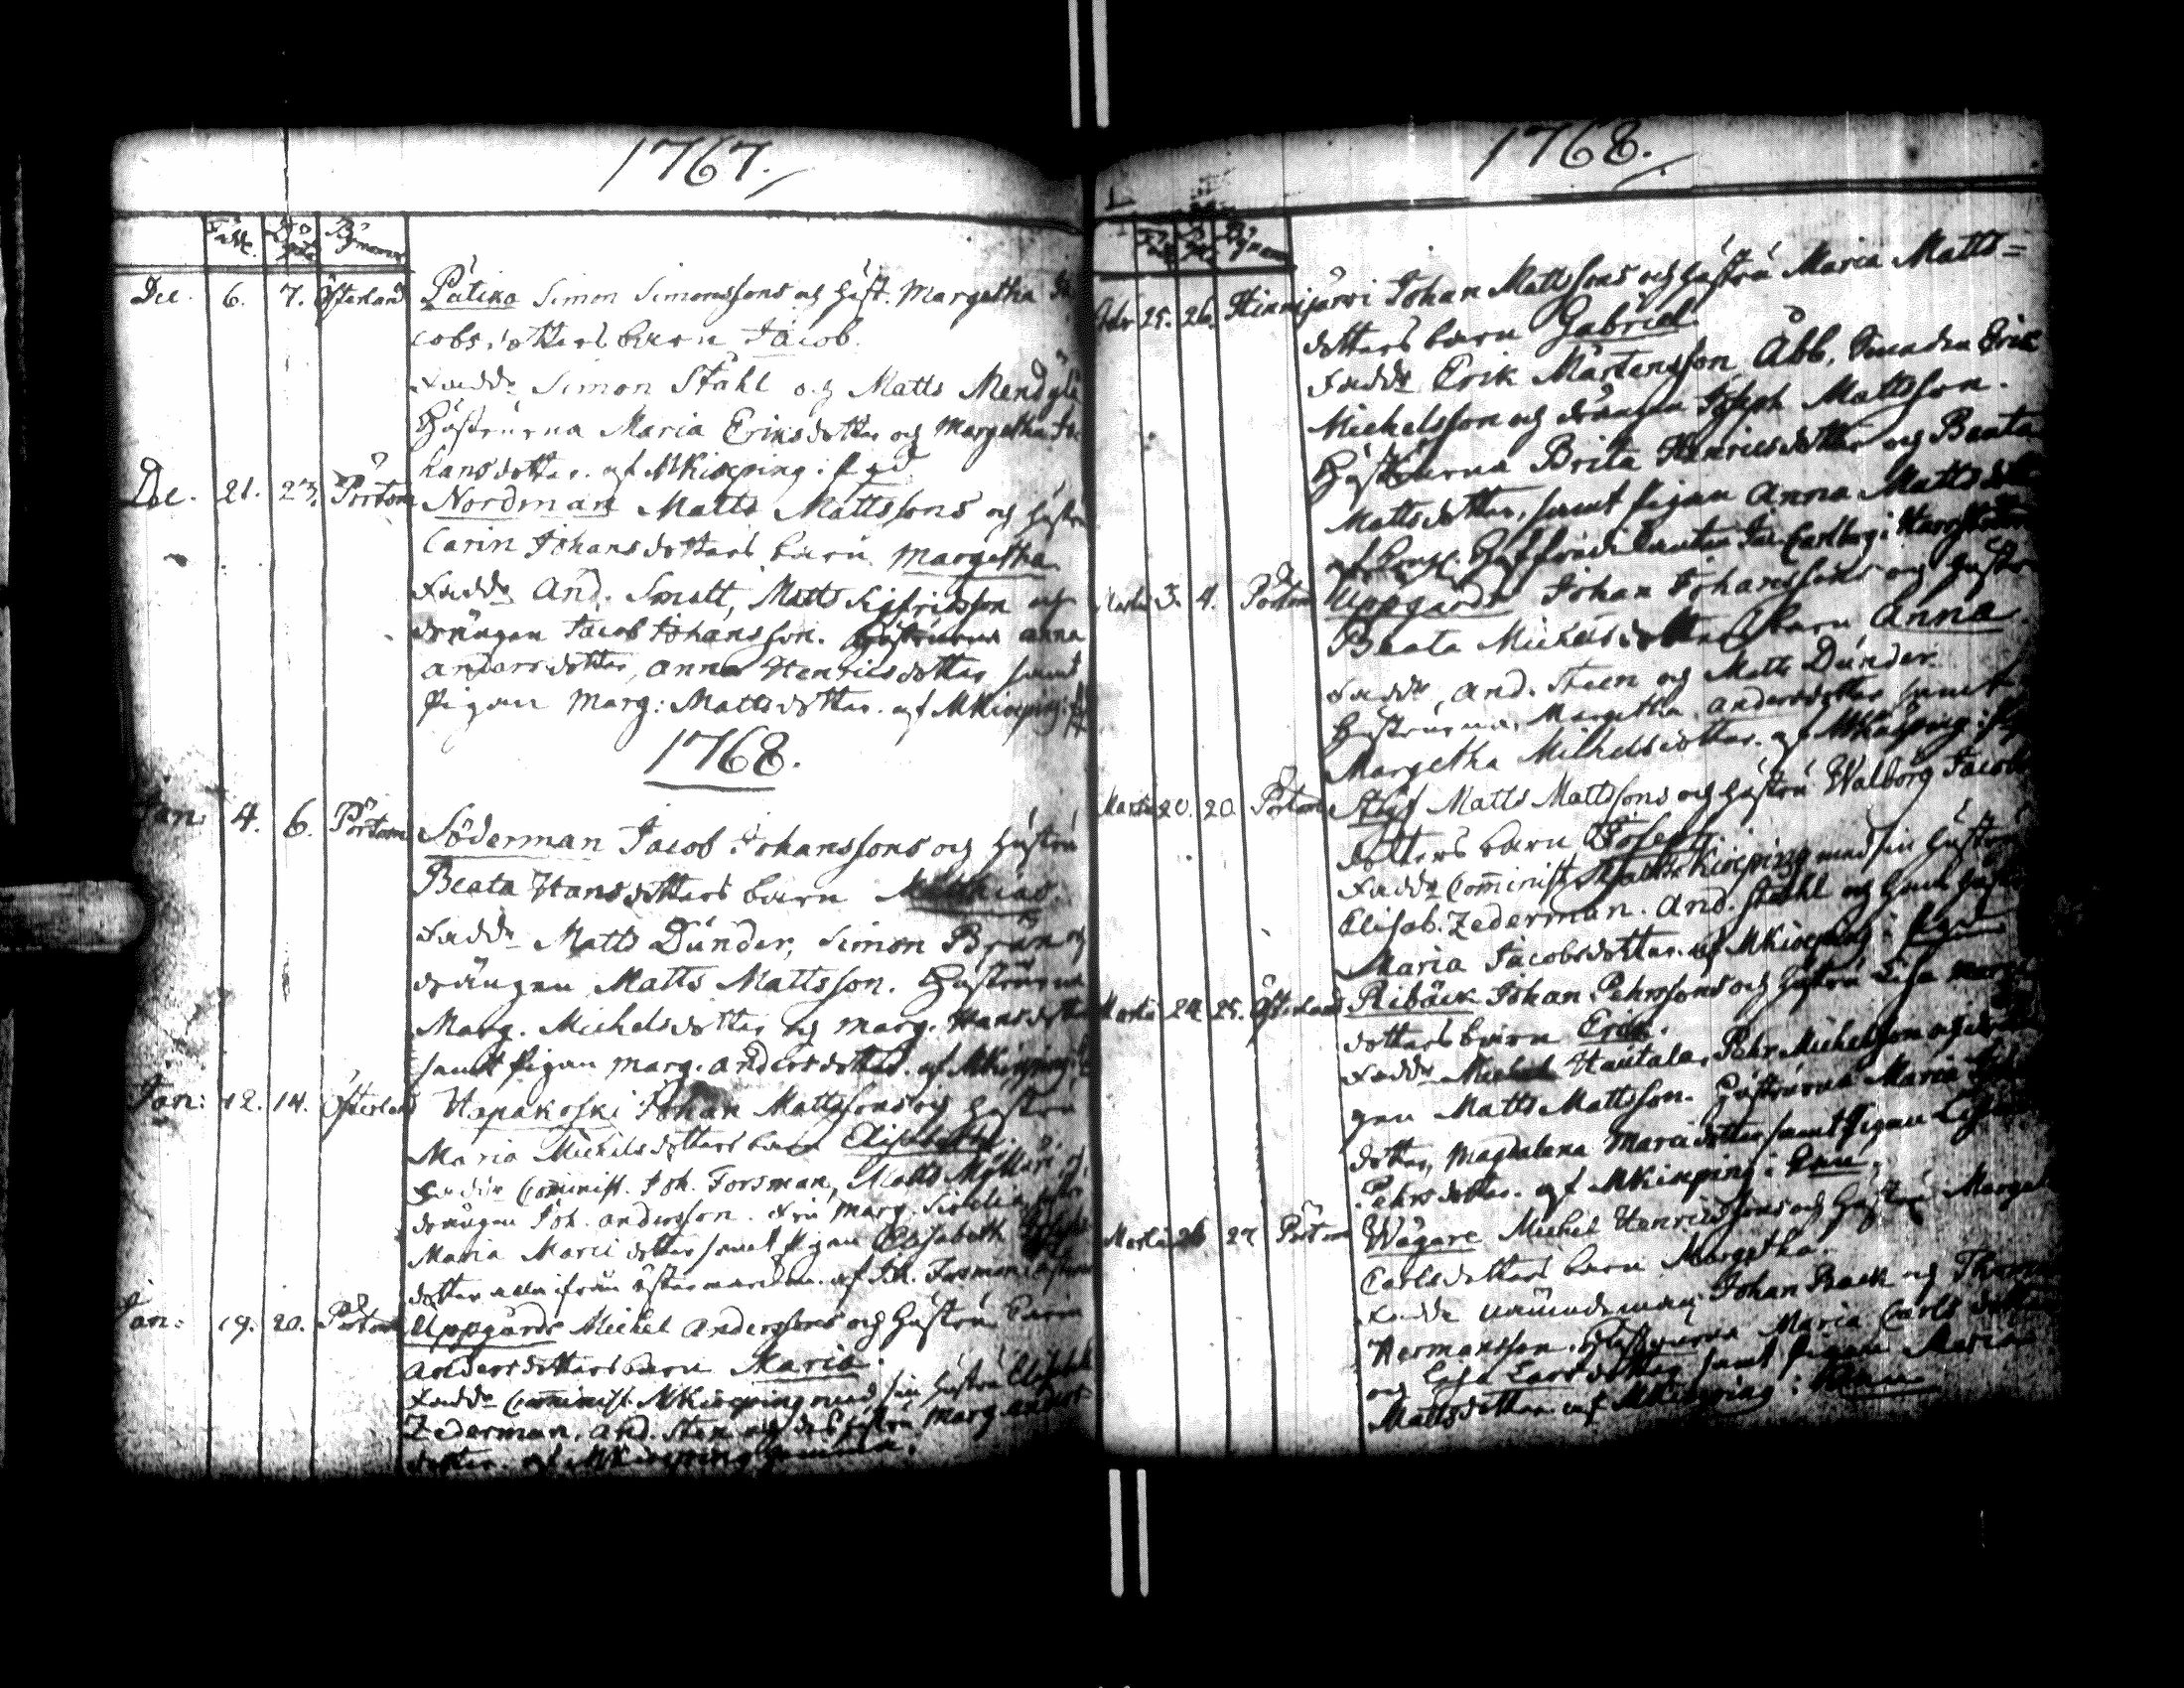 1767.
Född. Döpt. Bynamn
Dec. 6. 7. Österland Pälika Simon Simonssons och Hust. Margetha Ja
cobs dotters barn Jacob.
Faddr Simon Ståhl och Matts Mendylä
Hustrurna Maria Eriksdotter och Margetha Jo
hansdotter. af MKiörping:
Dec. 21. 23. Pörtom Nordman Matts Mattssons och Hustru
Carin Johansdotters barn Margetha
Faddr And. Smatt, Matts Sigfridsson och
drängen Jacob Johansson. Hustrurna Anna
Andersdotter, Anna Henricsdotter samt
Pigan Marg: Mattsdotter. af MKiörping:
1768.
Jan: 4. 6. Pörtom Söderman Jacob Johanssons och Hustru
Beata Hansdotters barn Matthias.
Faddr Matts Dunder, Simon Brun och
drängen Matts Mattsson. Hustrurna
Marg. Michelsdotter och Marg. Hansdotter
samt Pigan Marg. Andersdotter. af MKiörping:
Jan: 12. 14. Österland Hapakoski Johan Mattssons och Hustru
Maria Michelsdotters barn Elisabeth.
Faddr Comminist. Joh. Forsman, Matts Myllari och
drängen Joh. Andersson. Fru Marg.
Maria Marci dotter samt Pigan Elisabeth
dotter alla ifrån Östermarck. af Joh. Forsman
Jan: 19. 20. Pörtom Uppgårds Michel Anderssons och Hustru Carin
Anders dotters barn Maria.
Faddr Comminist. MKiörping med sin Hustru Elisabeth
Zederman. And. Sten och des Hustru Marg. Anders
dotter. af MKiörping hemma.
1768.
Född Döpt Bynamn
Febr 25. 26. Hinnijärvi Johan Mattssons och Hustru Maria Matts=
dotters barn Gabriel.
Faddr Erik Mårtensson Åbb, Erik
Michelsson och drängen Joseph Mattsson.
Hustrurna Brita Henricsdotter och Beata
Mattsdotter, samt Pigan Anna Matts dotter
af Carlborg i
Martii 3. 4. Pörtom Uppgårds Johan Johanssons och Hustru
Beata Michelsdotters barn Anna.
Faddr, And. Steen och Matts Dunder.
Hustrurna Margetha Andersdotter samt
Margetha Michelsdotter. af MKiörping:
Martii 20. 20 Pörtom Matts Mattssons och Hustru Walborg Jacobs
dotters barn Joseph.
Faddr Comminist. MKiörping med sin Hustru
Elisab. Zederman. And. Ståhl och hans Hustru
Maria Jacobsdotter. af MKiörping:
Martii 24. 25. Österland Ribäck Johan Pehrssons och Hustru Lisa
dotters barn Erik.
Faddr Michel Hautala, Pehr Michelsson och drän
gen Matts Mattsson. Hustrurna Maria
dotter, Magdalena Marci dotter samt Pigan Lisa
Pehrsdotter. af MKiörping:
Martii 26 27 Pörtom Wägare Michel Henricssons och Hustru Marget
Carlsdotters barn Margetha.
Faddr Nämndeman Johan Back och Thomas
Hermansson. Hustrurna Maria Carls dotter
och Lisa Larsdotter samt Pigan Maria
Mattsdotter af MKiörping: